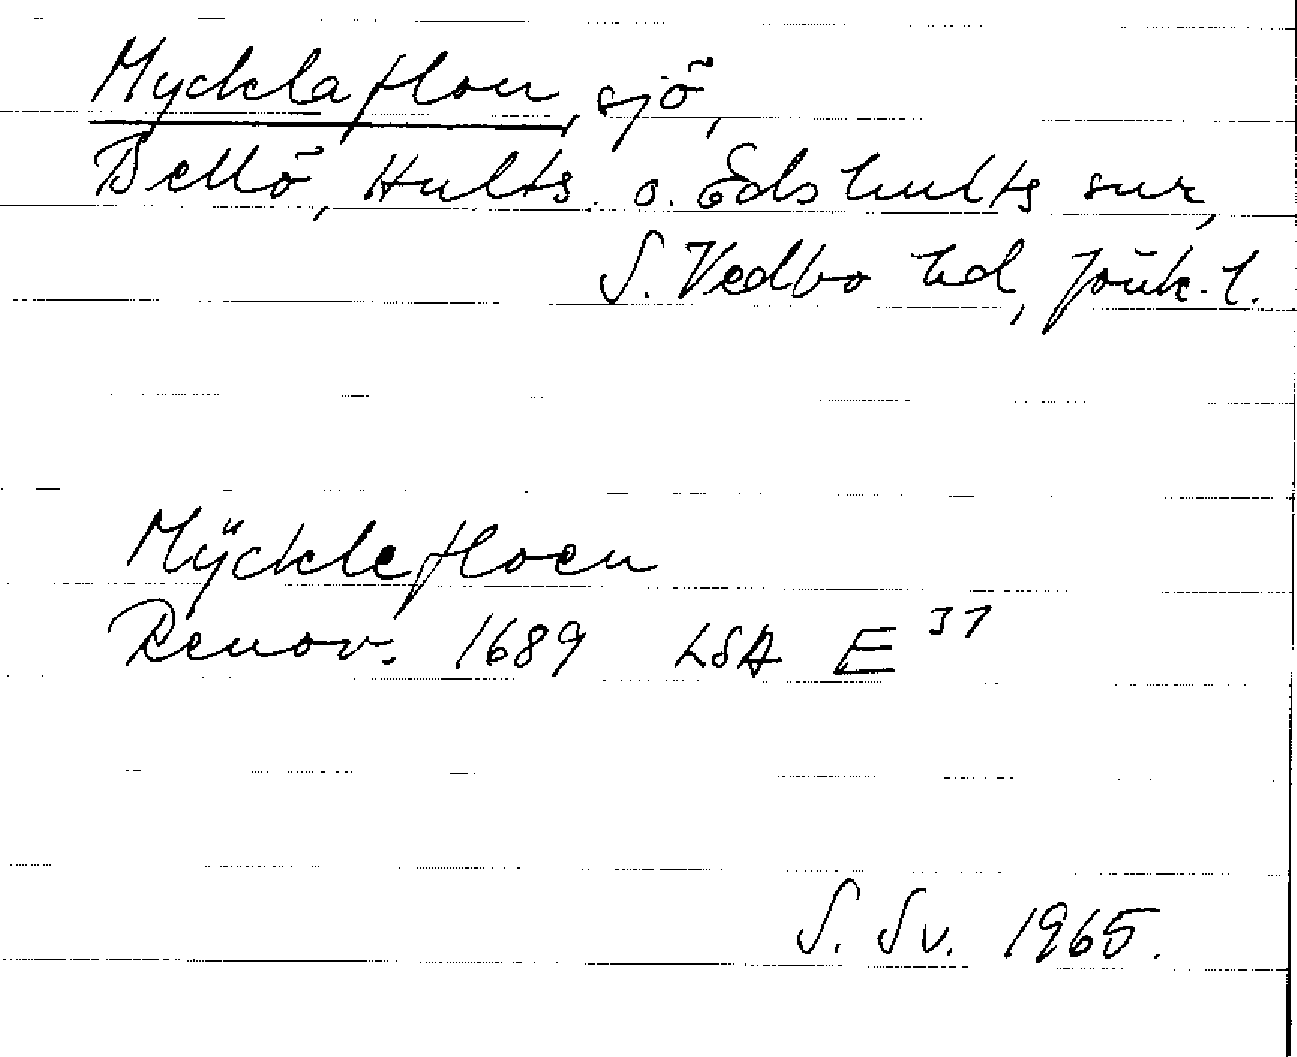 Mycklaflon, sjö,
Bellö, Hults. o. Edshults snr,
S. Vedbo hd, Jönk. l.
Mÿcklefloen
Renov. 1689 LSA E 37
S. Sv. 1965.